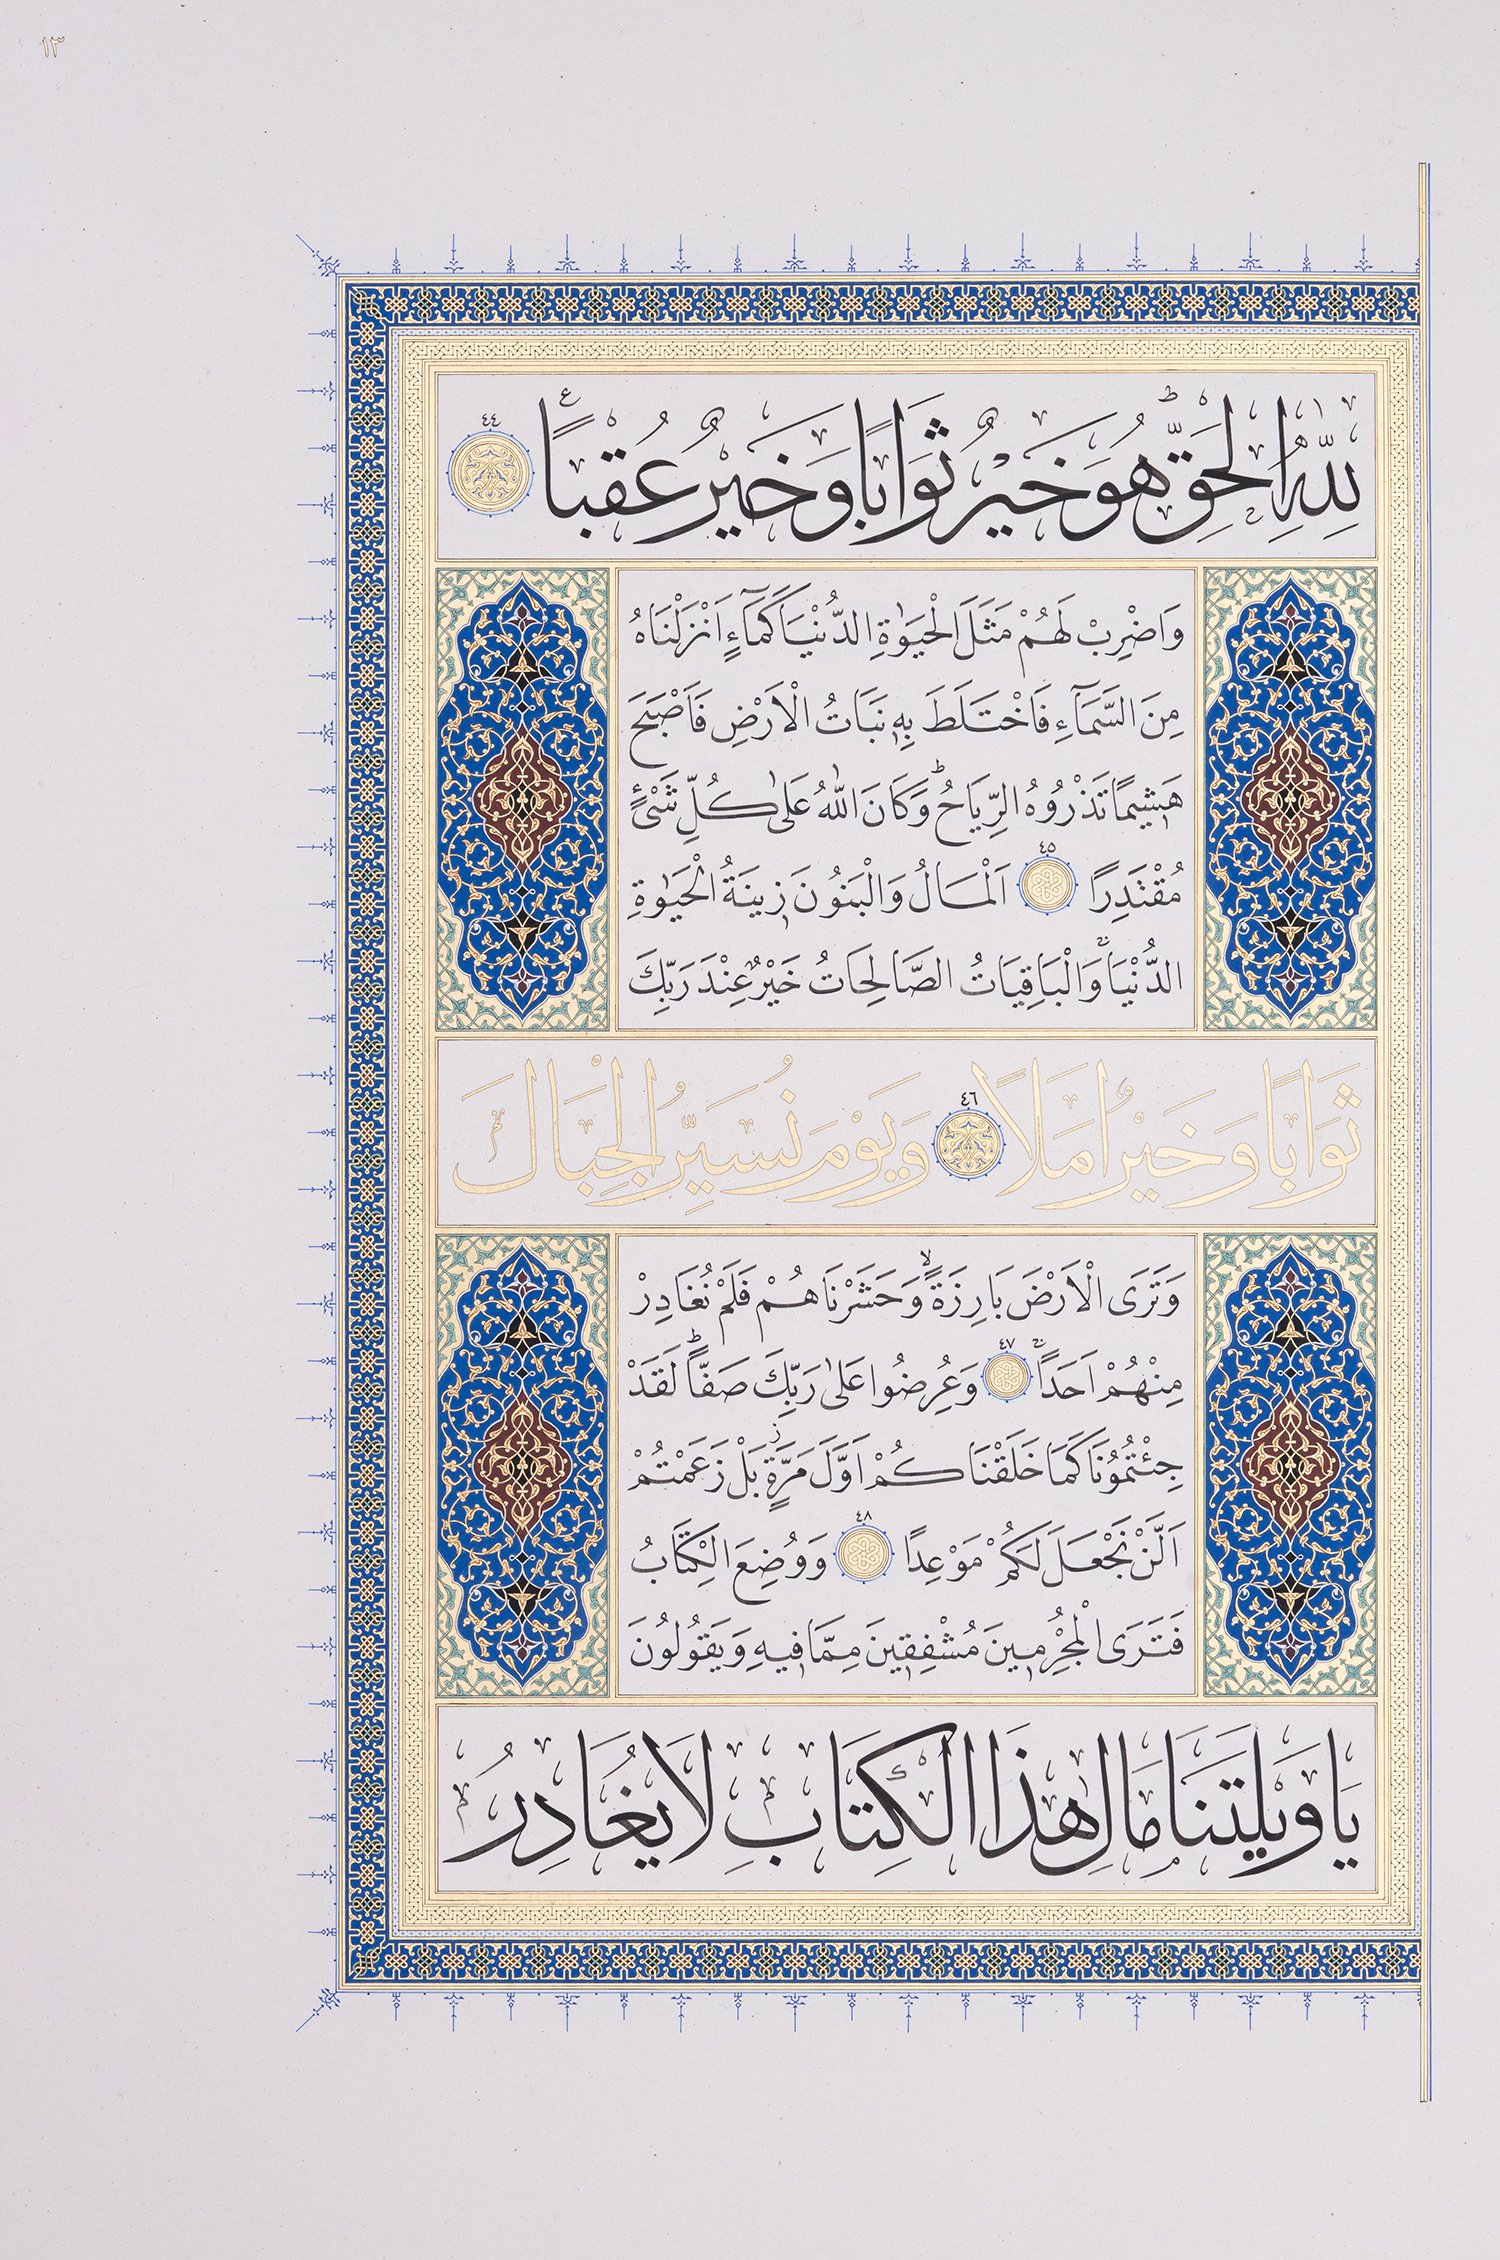 ١٣
لِلّٰهِ الْحَقِّ هُوَ خَيْرٌ ثَوَابًا وَخَيْرٌ عُقْبًا ٤٤
وَاضْرِبْ لَهُمْ مَثَلَ الْحَيٰوةِ الدُّنْيَا كَمَآءٍ اَنْزَلْنَاهُ
مِنَ السَّمَآءِ فَاخْتَلَطَ بِهٖ نَبَاتُ الْاَرْضِ فَاَصْبَحَ
هَشٖيمًا تَذْرُوهُ الرِّيَاحُ وَكَانَ اللّٰهُ عَلٰى كُلِّ شَيْئٍ
مُقْتَدِرًا ٤٥ اَلْمَالُ وَالْبَنُونَ زٖينَةُ الْحَيٰوةِ
الدُّنْيَا وَالْبَاقِيَاتُ الصَّالِحَاتُ خَيْرٌ عِنْدَ رَبِّكَ
ثَوَابًا وَخَيْرٌ اَمَلًا ٤٦ وَيَوْمَ نُسَيِّرُ الْجِبَالَ
وَتَرَى الْاَرْضَ بَارِزَةً وَحَشَرْنَاهُمْ فَلَمْ نُغَادِرْ
مِنْهُمْ اَحَدًا ٤٧ وَعُرِضُوا عَلٰى رَبِّكَ صَفًّا لَقَدْ
جِئْتُمُونَا كَمَا خَلَقْنَاكُمْ اَوَّلَ مَرَّةٍ بَلْ زَعَمْتُمْ
اَلَّنْ نَجْعَلَ لَكُمْ مَوْعِدًا ٤٨ وَوُضِعَ الْكِتَابُ
فَتَرَى الْمُجْرِمٖينَ مُشْفِقٖينَ مِمَّا فٖيهِ وَيَقُولُونَ
يَا وَيْلَتَنَا مَالِ هٰذَا الْكِتَابِ لَا يُغَادِرُ